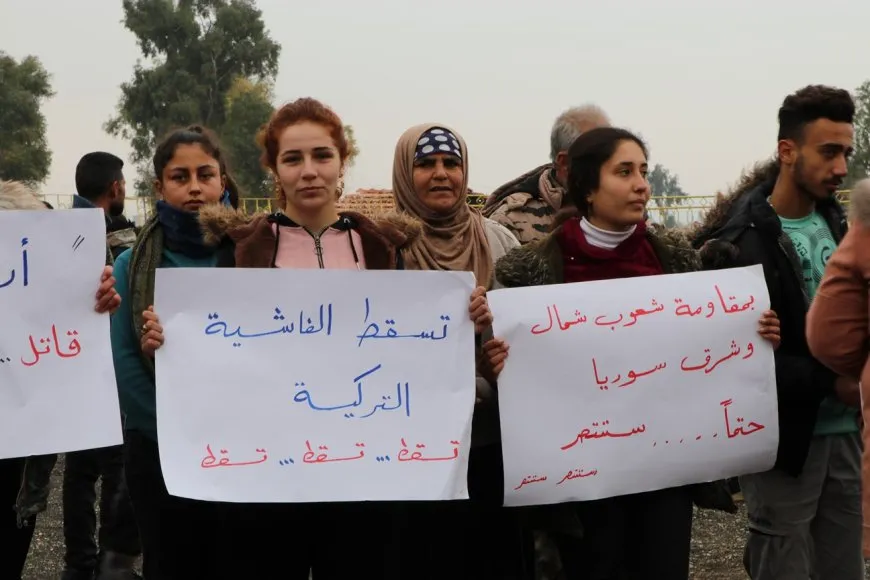 بمقاومة شعوب شمال
وشرق سوريا
حتماً ..... ستنتصر
ستنتصر ستنتصر
تسقط الفاشية
التركية
تسقط ... تسقط ... تسقط
قاتل ..